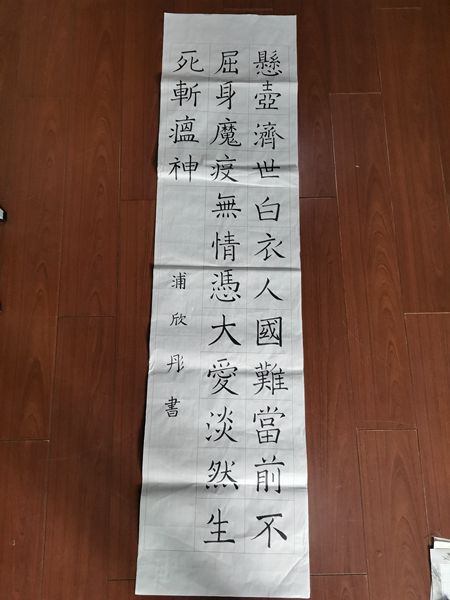 懸壺濟世白衣人國難當前不
屈身魔疫無情憑大愛淡然生
死斬瘟神
浦欣彤書